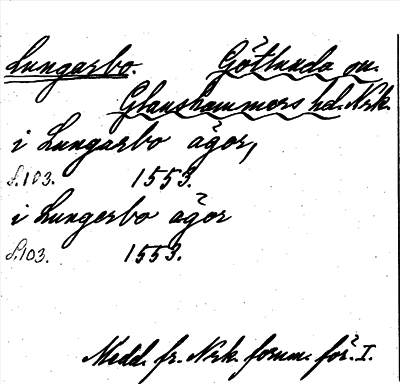 Lungarbo. Götlunda sn.
Glanshammers hd. Nrk.
i Lungarbo ägor,
S.103. 1553.
i Lungerbo ägor
S.103. 1553.
Medd. fr. Nrk. fornm. för. I.